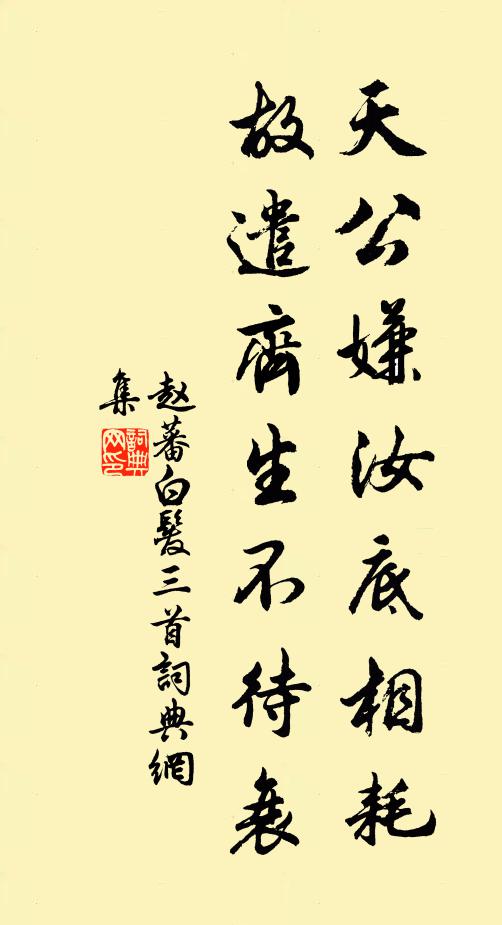 天公嫌汝底相耗
故遣齊生不待衰
赵蕃白髮三首詞典網
集
詞典
网印